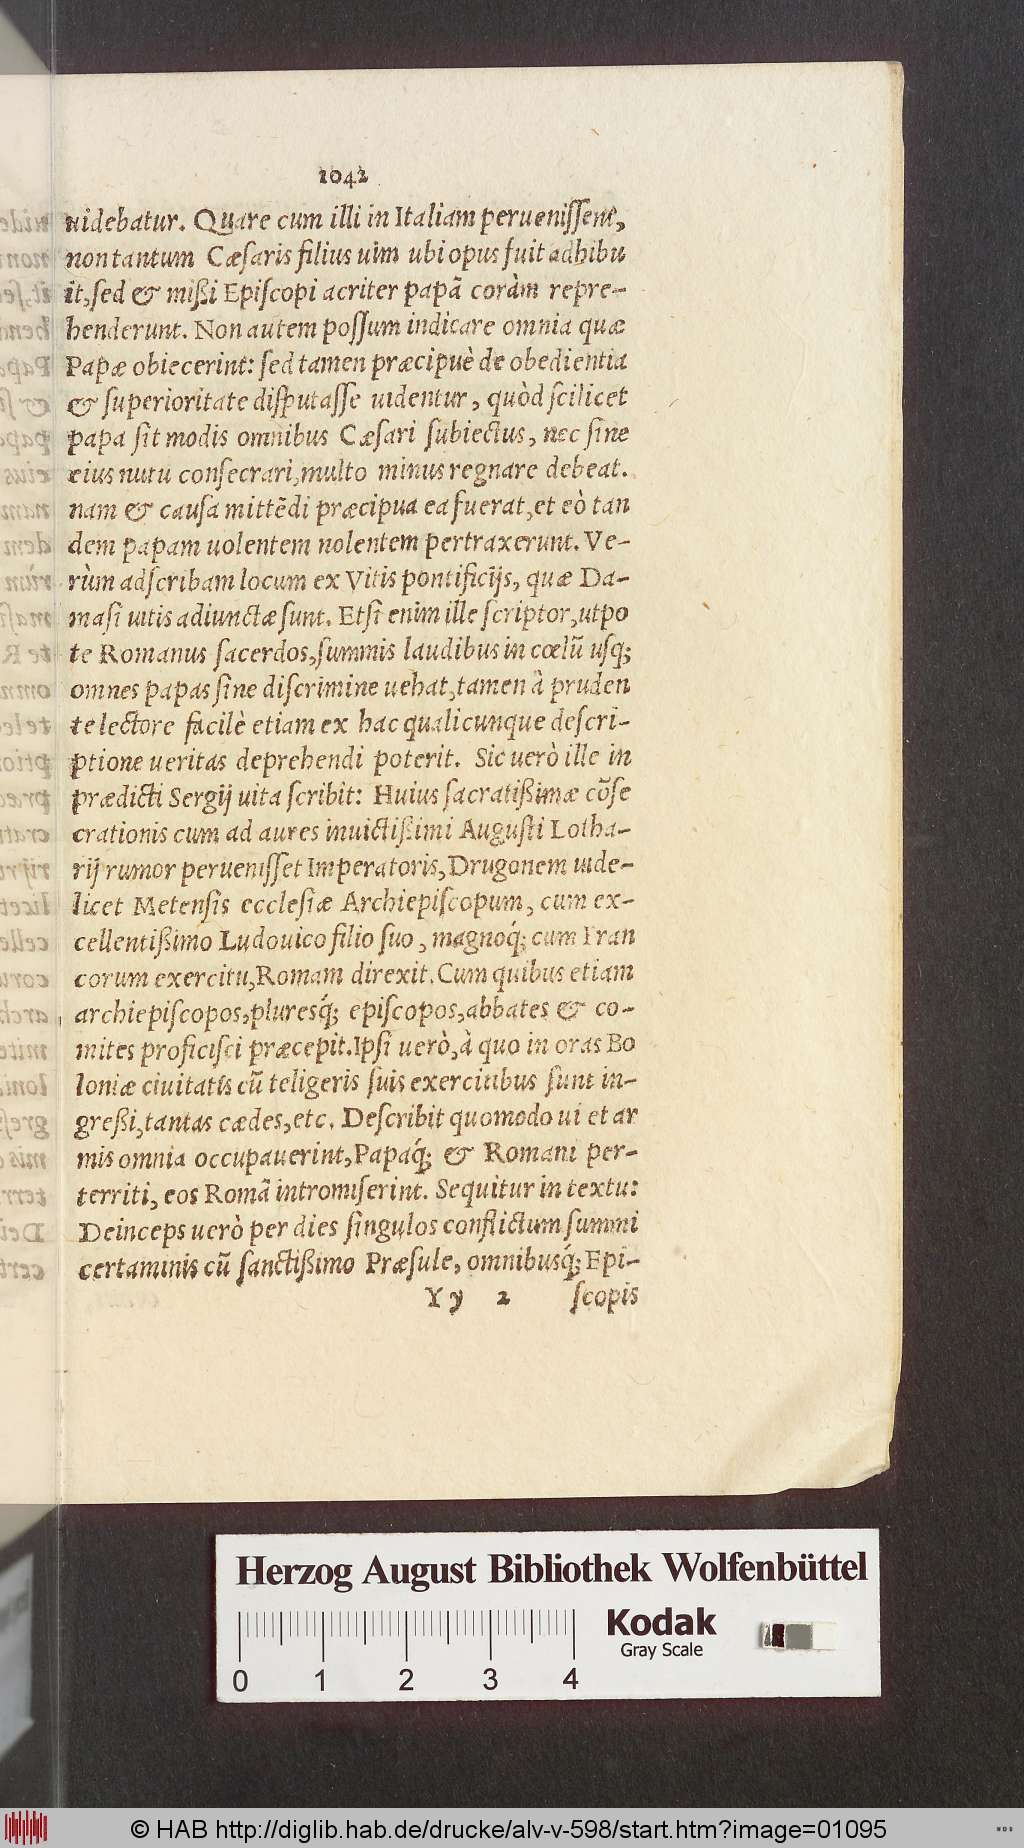 1042
uidebatur. Quare cum illi in Italiam peruenissent,
non tantum Cæsaris filius uim ubi opus fuit adhibu
it, sed & mißi Episcopi acriter papã coràm repre-
henderunt. Non autem possum indicare omnia quæ
Papæ obiecerint: sed tamen præcipuè de obedientia
& superioritate disputasse uidentur, quòd scilicet
papa sit modis omnibus Cæsari subiectus, nec sine
eius nutu consecrari, multo minus regnare debeat.
nam & causa mittẽdi præcipua ea fuerat, et eò tan
dem papam uolentem nolentem pertraxerunt. Ve-
rùm adscribam locum ex Vitis pontificijs, quæ Da-
masi uitis adiunctæ sunt. Etsi enim ille scriptor, utpo
te Romanus sacerdos, summis laudibus in cœlũ usq;
omnes papas sine discrimine uehat, tamen à pruden
te lectore facilè etiam ex hac qualicunque descri-
ptione ueritas deprehendi poterit. Sic uerò ille in
prædicti Sergij uita scribit: Huius sacratißimæ cõse
crationis cum ad aures inuictißimi Augusti Lotha-
rij rumor peruenisset Imperatoris, Drugonem uide-
licet Metensis ecclesiæ Archiepiscopum, cum ex-
cellentißimo Ludouico filio suo, magnoq́; cum Fran
corum exercitu, Romam direxit. Cum quibus etiam
archiepiscopos, pluresq́; episcopos, abbates & co-
mites proficisci præcepit. Ipsi uerò, à quo in oras Bo
loniæ ciuitatis cũ teligeris suis exercitibus sunt in-
greßi, tantas cædes, etc. Describit quomodo ui et ar
mis omnia occupauerint, Papaq́; & Romani per-
territi, eos Romã intromiserint. Sequitur in textu:
Deinceps uerò per dies singulos conflictum summi
certaminis cũ sanctißimo Præsule, omnibusq́; Epi-
Y y 2 scopis
Herzog August Bibliothek Wolfenbüttel
Kodak
Gray Scale
0 1 2 3 4
© HAB http://diglib.hab.de/drucke/alv-v-598/start.htm?image=01095